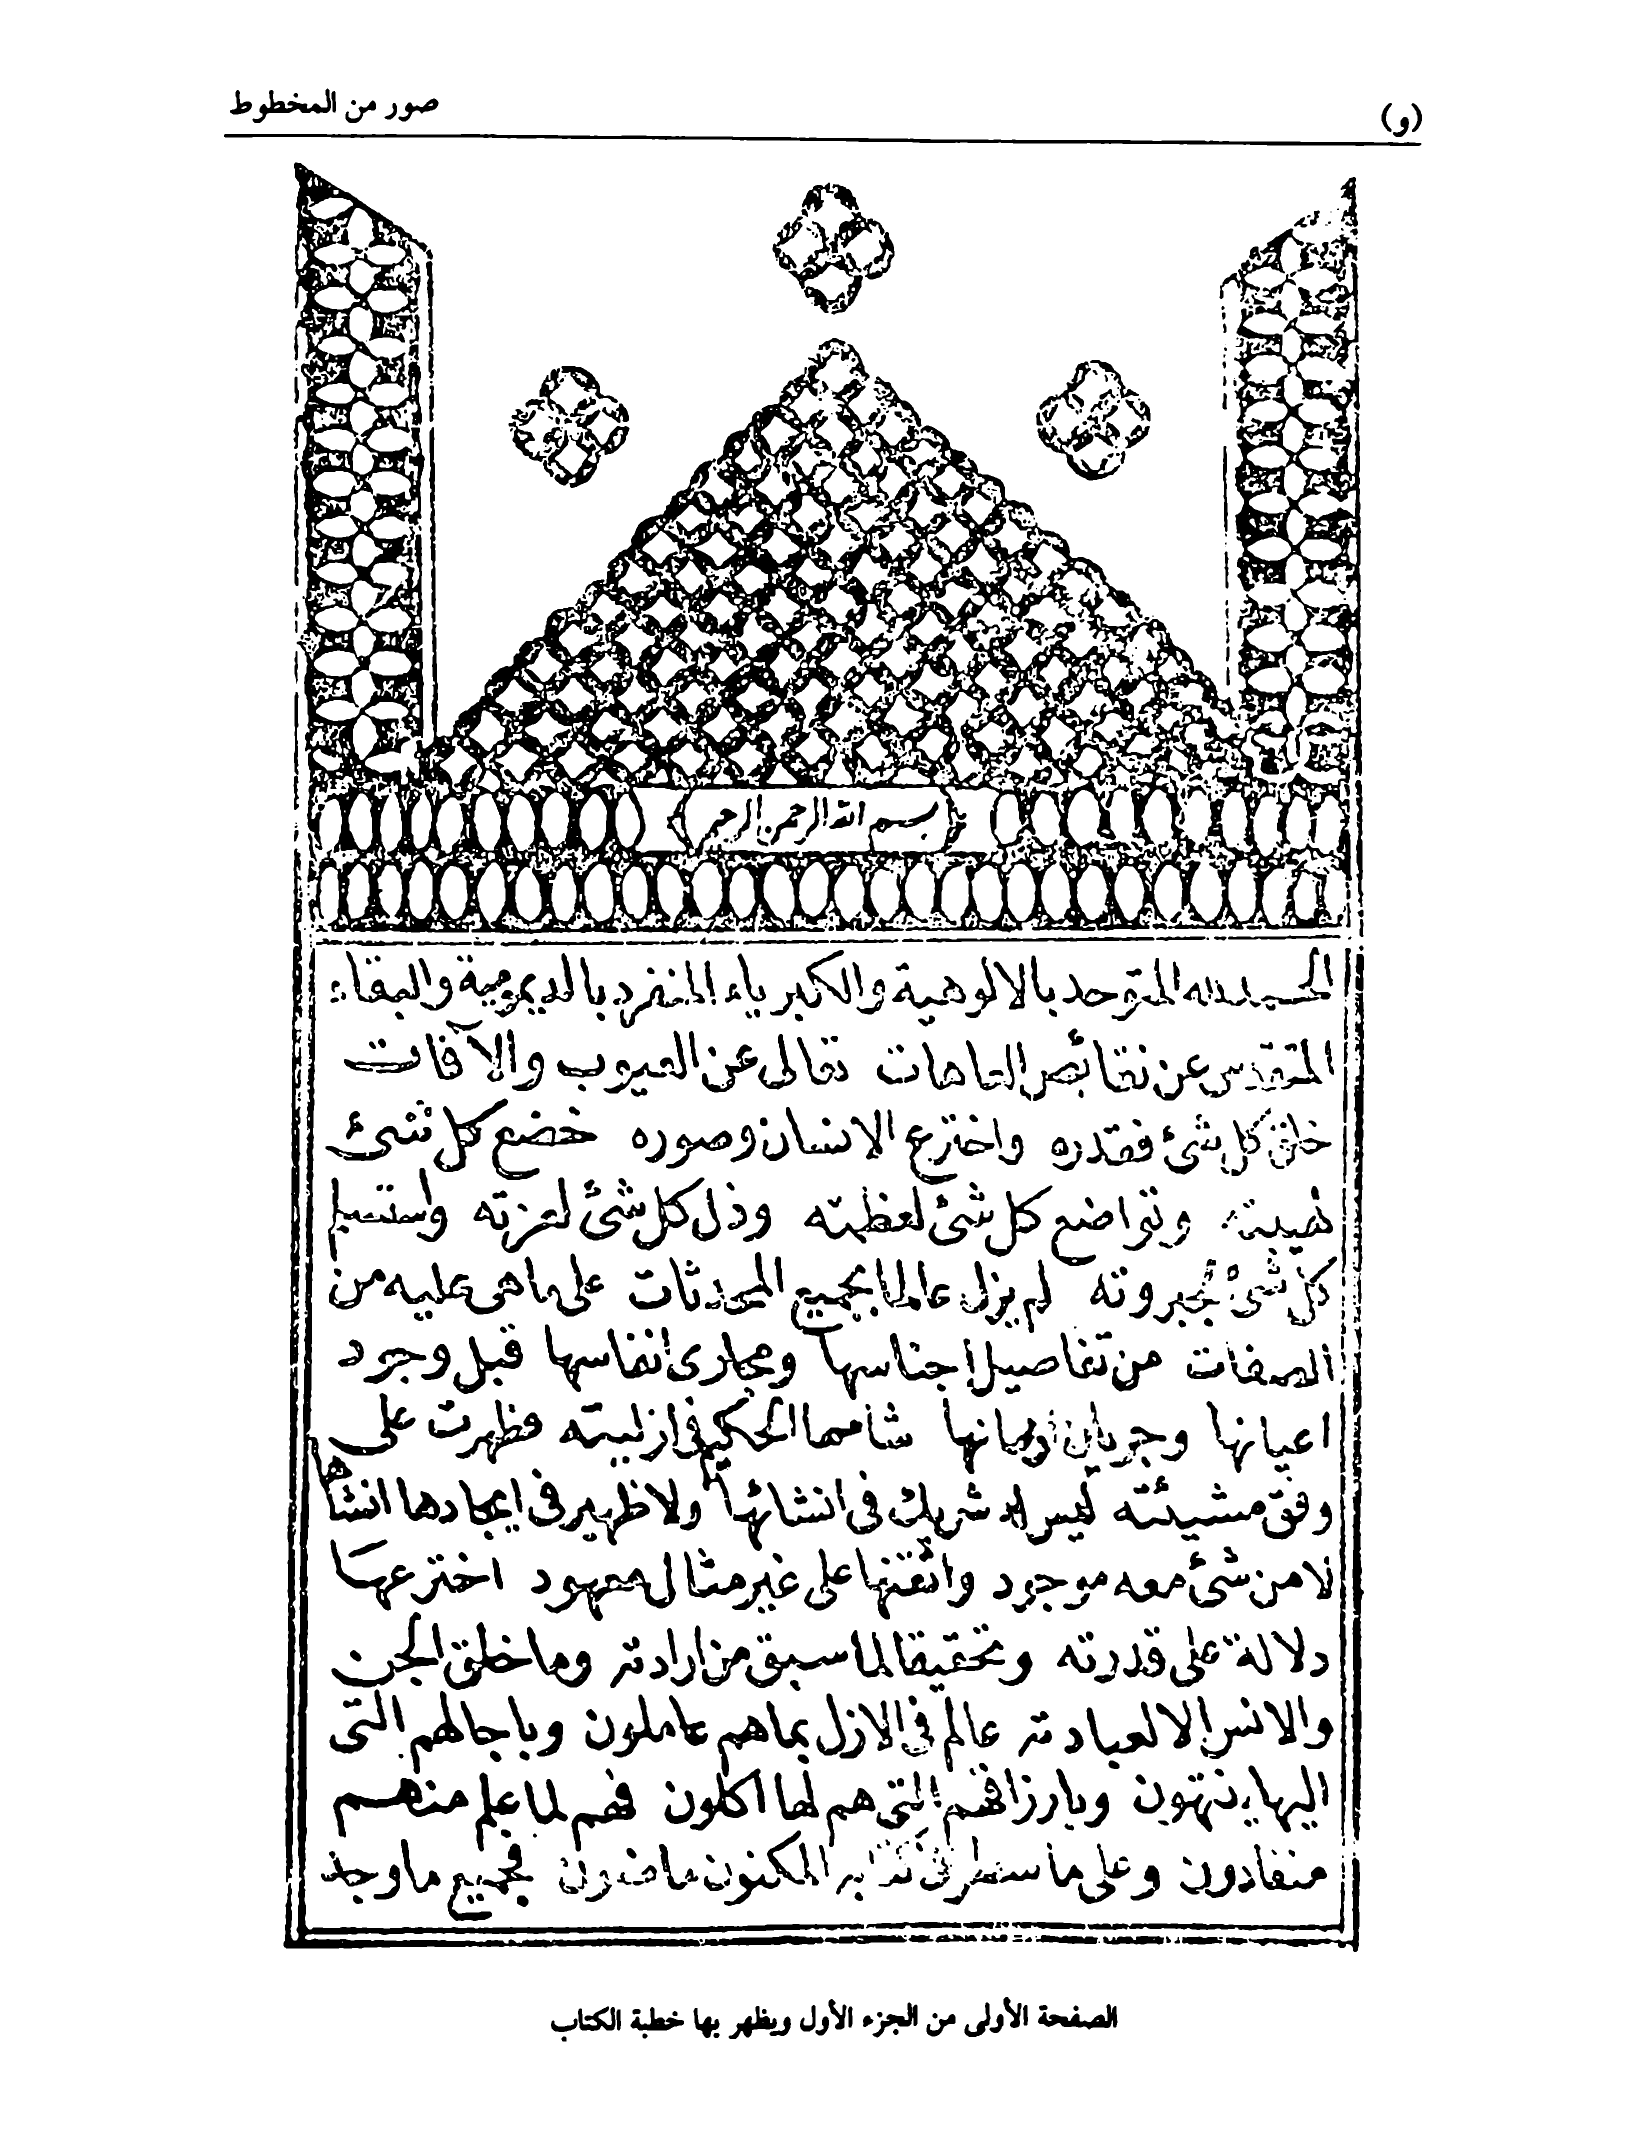 (و)
صور من المخطوط
بسم الله الرحمن الرحيم
الحمد لله المتوحد بالالوهية والكبرياء المنفرد بالديمومية والبقاء
المتقدس عن نقائص العاهات تعالى عن العيوب والآفات
خلق كل شئ فقدره واخترع الانسان وصوره خضع كل شئ
لهيبته وتواضع كل شئ لعظمته وذل كل شئ لعزته واستسلم
كل شئ لجبروته لم يزل عالما بجميع المحدثات على ما هى عليه من
الصفات من تفاصيل اجناسها ومجارى انفاسها قبل وجود
اعيانها وجريان ازمانها شاءها الحكيم فى ازليته فظهرت على
وفق مشيئته ليس له شريك فى انشائها ولا ظهير فى ايجادها انشأها
لا من شئ معه موجود واتقنها على غير مثال معهود اخترعها
دلالة على قدرته وتحقيقا لما سبق من ارادته وما خلق الجن
والانس إلا لعبادته عالم فى الازل بما هم عاملون وباجالهم التى
اليها ينتهون وبارزاقهم التى هم لها اكلون فهم لما علم منهم
منقادون وعلى ما سطر فى كتابه المكنون ماضون فجميع ما وجد
الصفحة الأولى من الجزء الأول ويظهر بها خطبة الكتاب